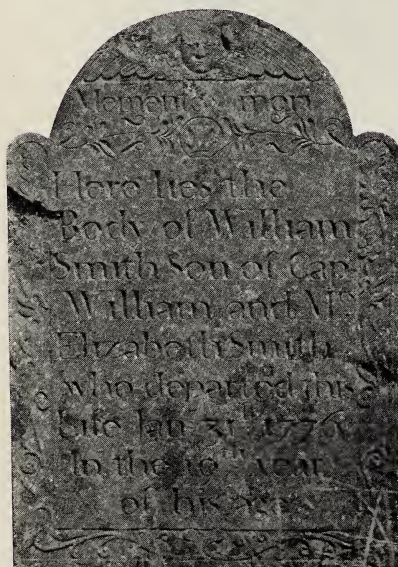 Memento mori
Here lies the
Body of William
Smith Son of Cap
William and Mrs
Elizabeth Smith
who departed this
Life Jan 31 1776
In the 10th year
of his age